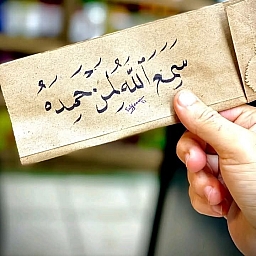 سَمِعَ ٱللَّهُ لِمَنْ حَمِدَهُ